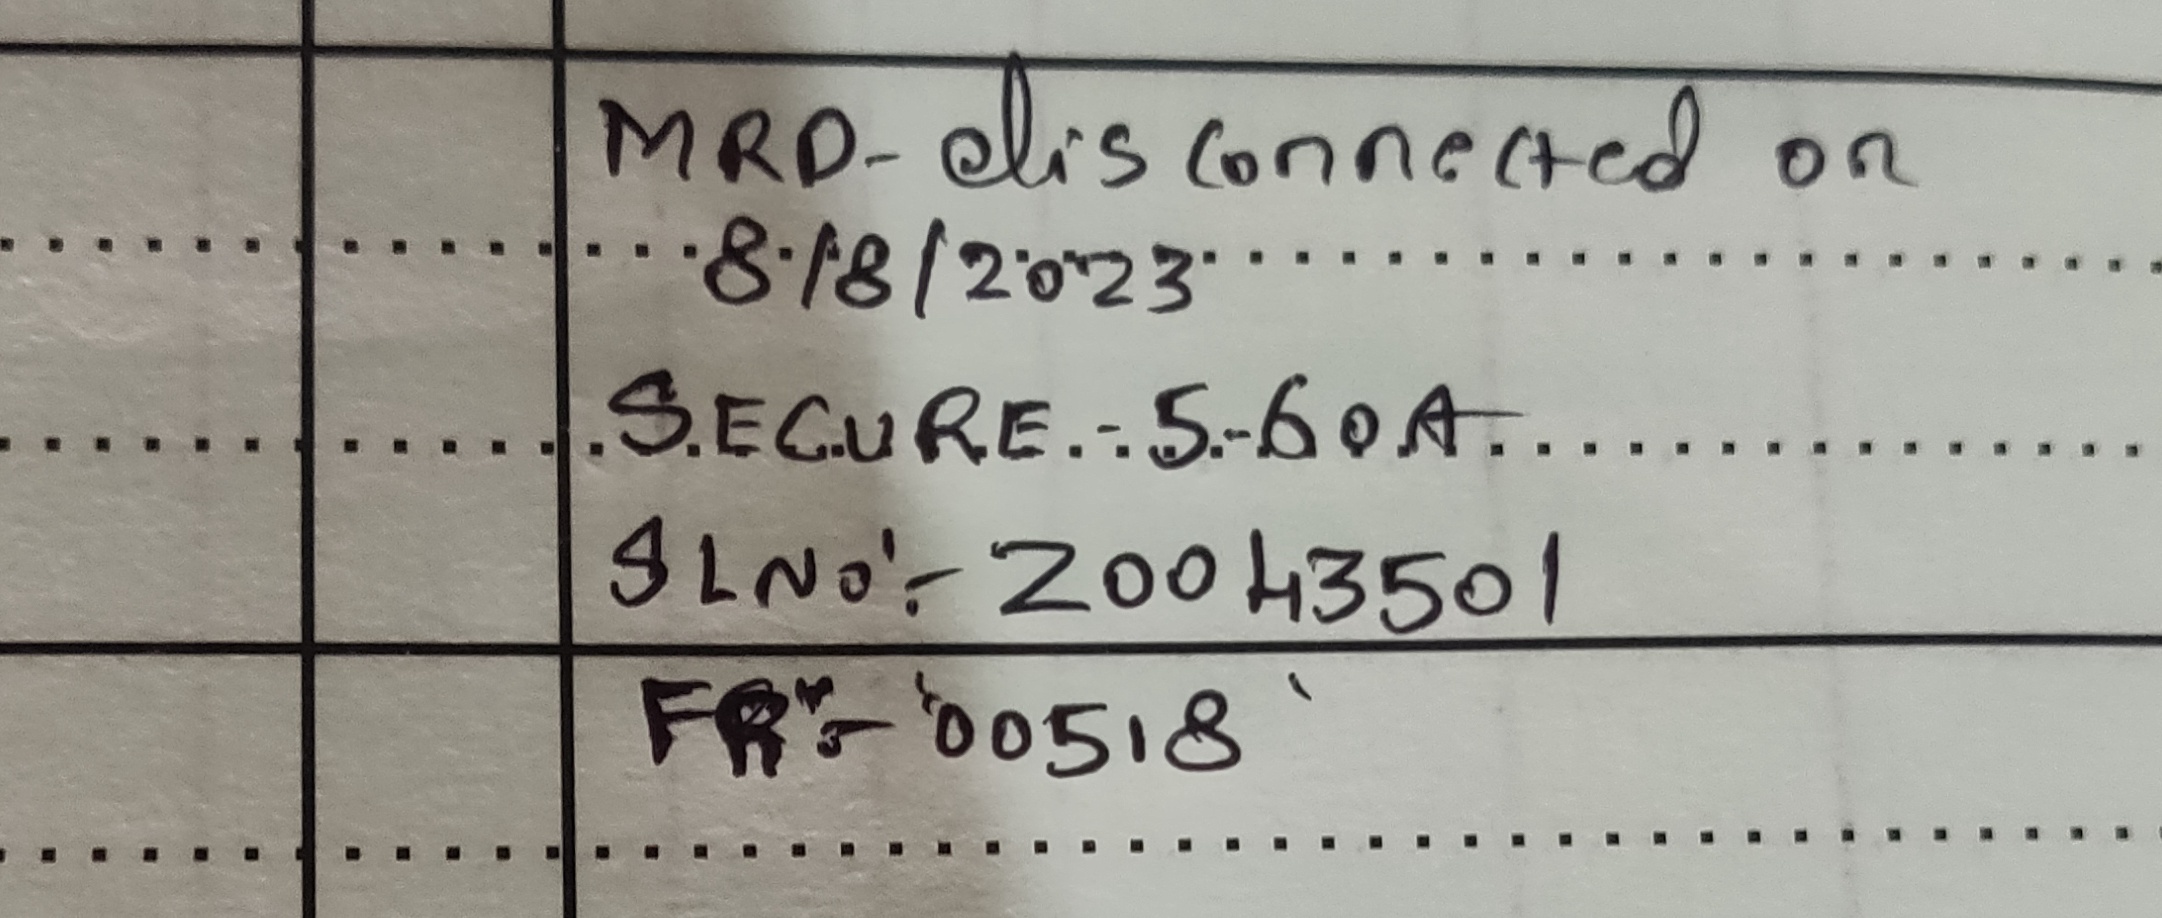 MRD- disconnected on
8/8/2023
SECURE :- 5-60A
SLNO:- 20043501
FR:- 00518